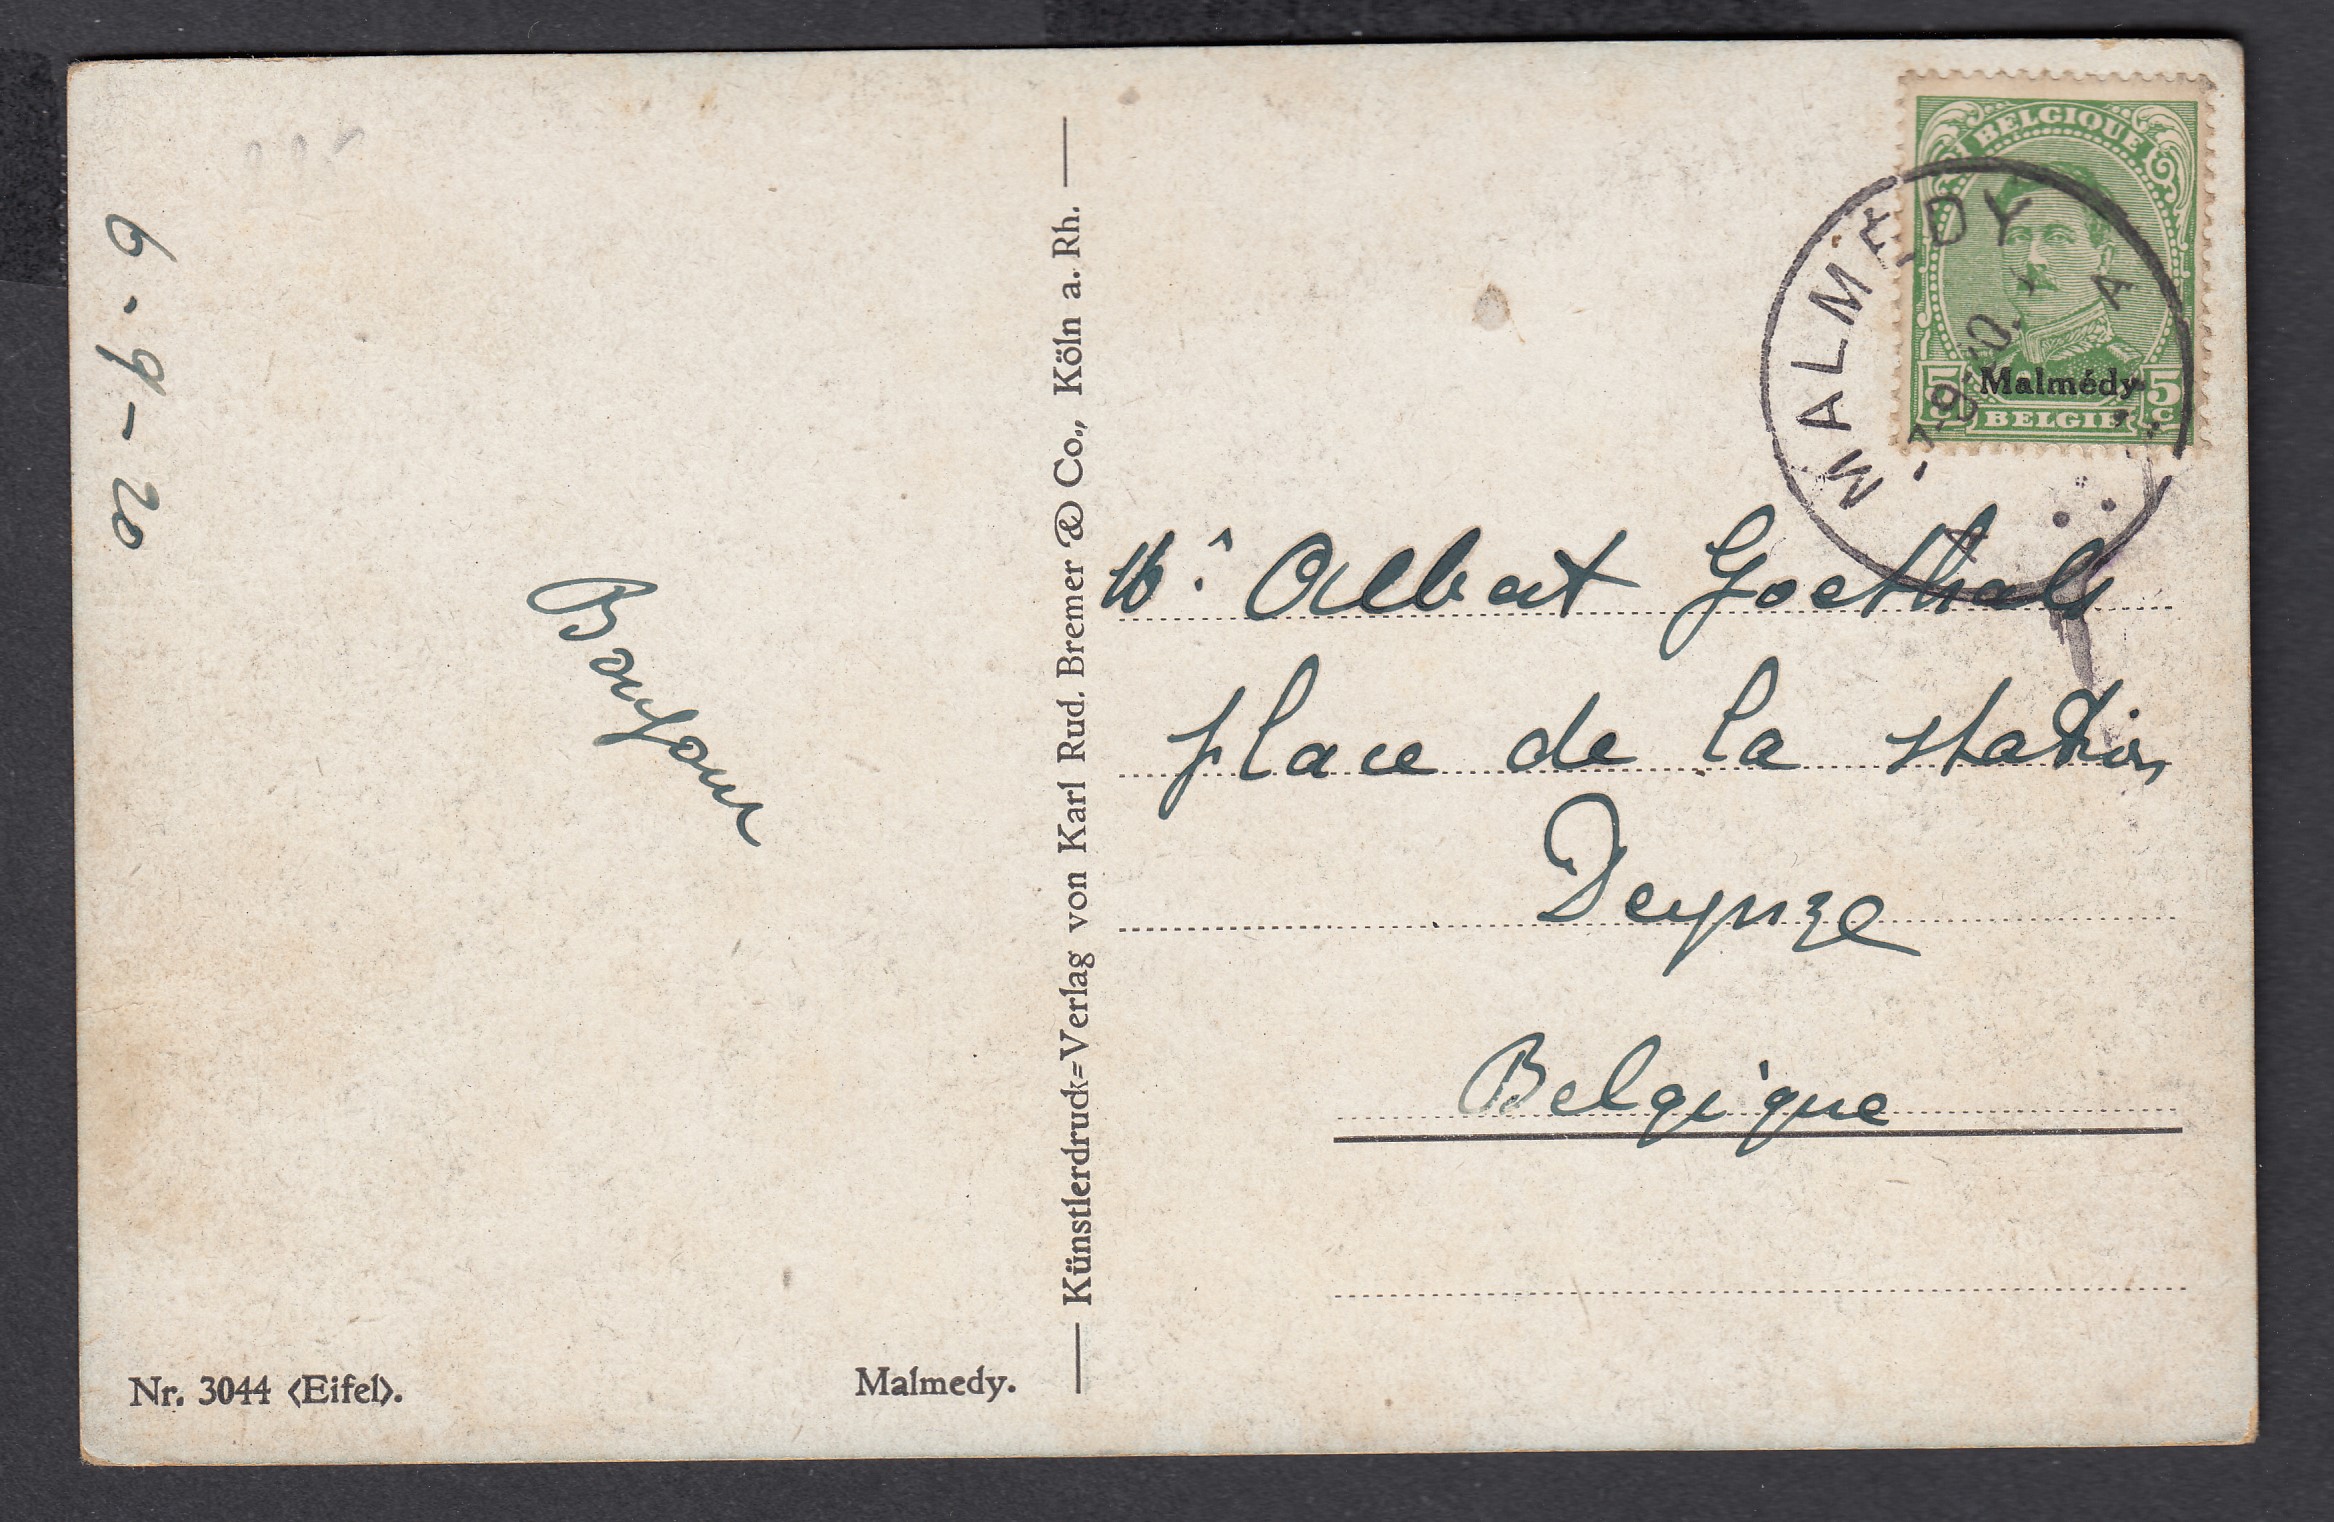 6-9-20
Bonjour
Nr. 3044 <Eifel>.
Malmedy.
Künstlerdruck=Verlag von Karl Rud. Bremer & Co., Köln a. Rh.
BELGIQUE
5 Malmédy 5
c
BELGIË
MALMEDY
A
Mr Albert Goethals
place de la station
Deynze
Belgique